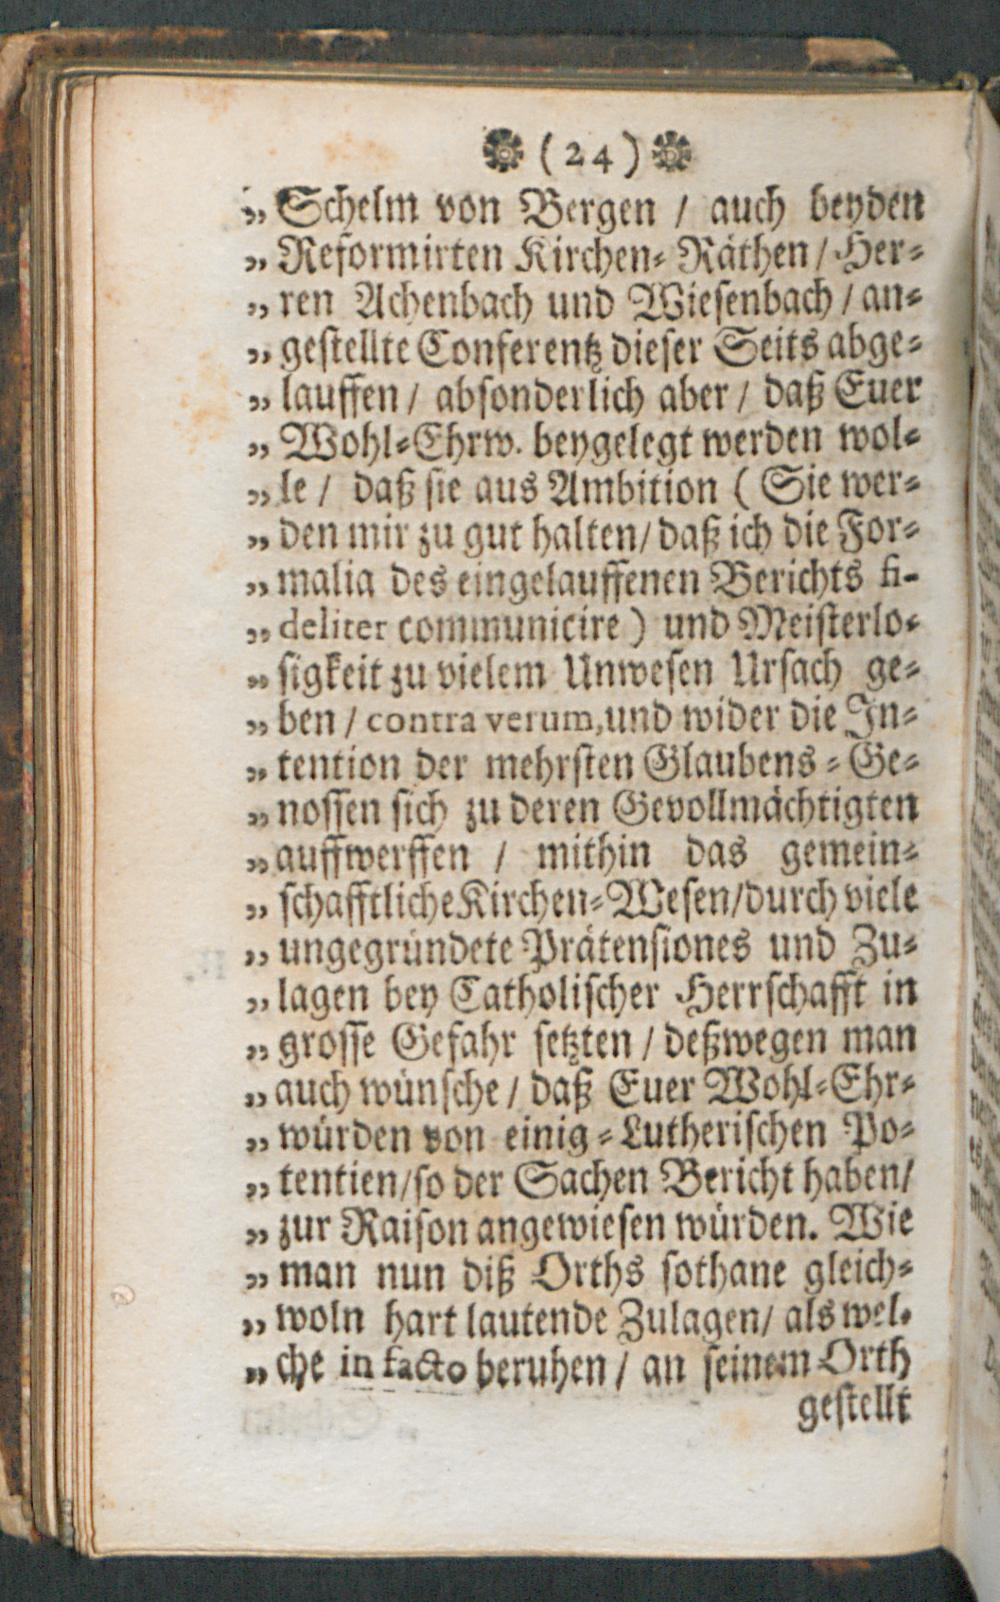 (24)
„ Schelm von Bergen / auch beyden
„ Reformirten Kirchen⸗Räthen / Her⸗
„ ren Achenbach und Wiesenbach / an⸗
„ gestellte Conferentz dieser Seits abge⸗
„ lauffen / absonderlich aber / daß Euer
„ Wohl⸗Ehrw. beygelegt werden wol⸗
„ le / daß sie aus Ambition ( Sie wer⸗
„ den mir zu gut halten / daß ich die For⸗
„ malia des eingelauffenen Berichts fi-
„ deliter communicire ) und Meisterlo⸗
„ sigkeit zu vielem Unwesen Ursach ge⸗
„ ben / contra verum, und wider die In⸗
„ tention der mehrsten Glaubens⸗Ge⸗
„ nossen sich zu deren Gevollmächtigten
„ auffwerffen / mithin das gemein⸗
„ schafftliche Kirchen⸗Wesen / durch viele
„ ungegründete Prätensiones und Zu⸗
„ lagen bey Catholischer Herrschafft in
„ grosse Gefahr setzten / deßwegen man
„ auch wünsche / daß Euer Wohl⸗Ehr⸗
„ würden von einig⸗Lutherischen Po⸗
„ tentien / so der Sachen Bericht haben /
„ zur Raison angewiesen würden. Wie
„ man nun diß Orths sothane gleich⸗
„ woln hart lautende Zulagen / als wel⸗
„ che in facto beruhen / an seinem Orth
gestellt